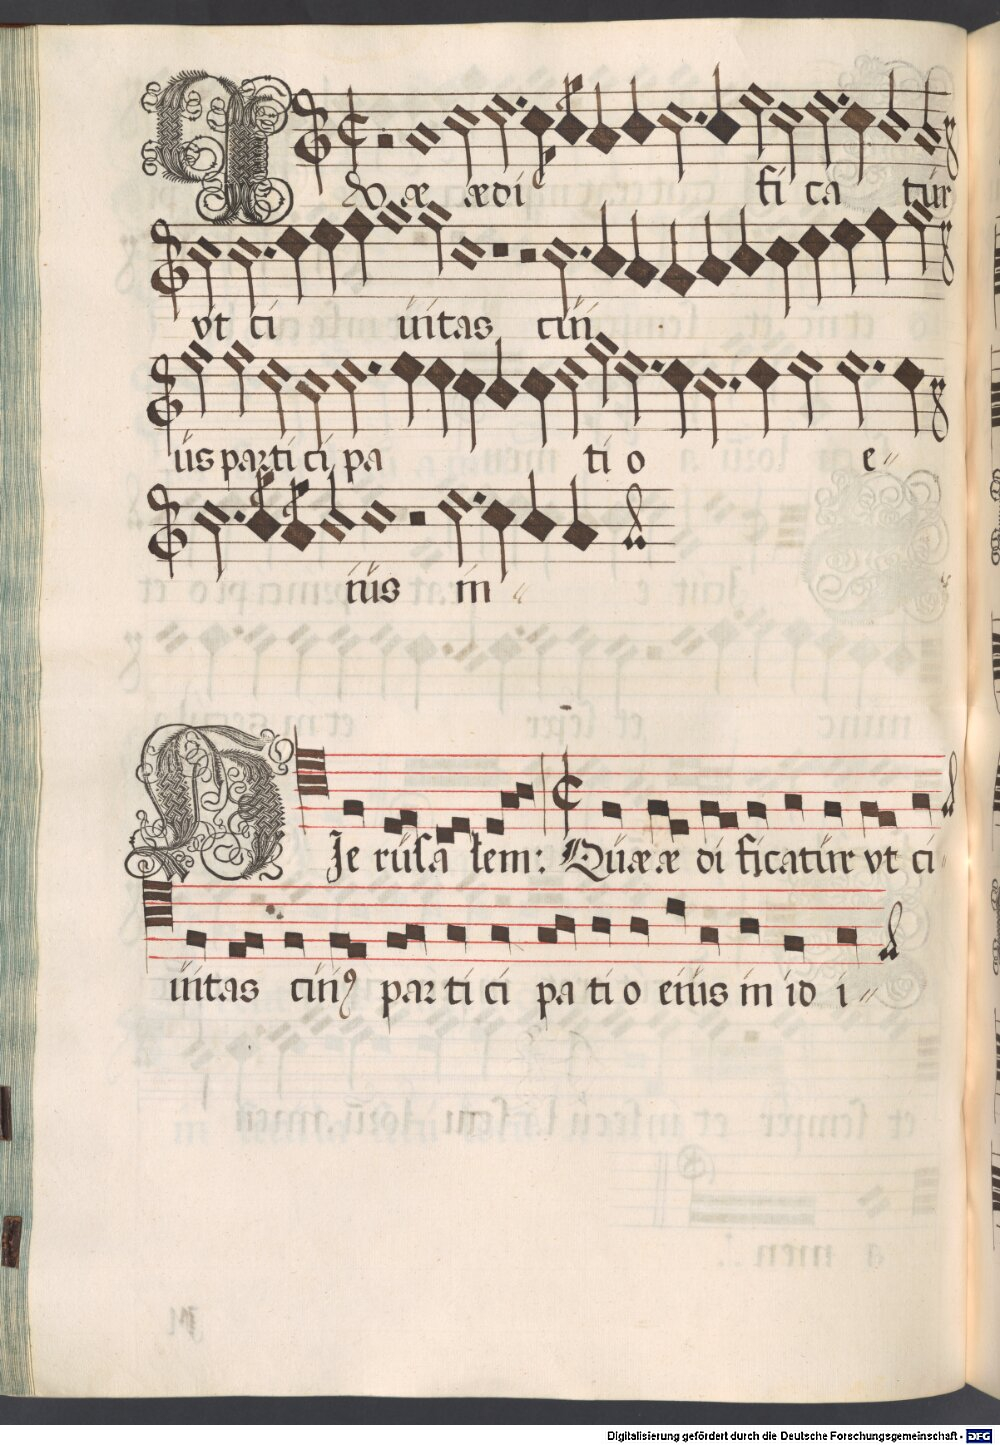 Quæ ædi fi ca tur
vt ci uitas cui
us parti ci pa ti o e
ius in
Je rusa lem: Quæ æ di ficatur vt ci
uitas cui⁹ par ti ci pa ti o eius in id i
Digitalisierung gefördert durch die Deutsche Forschungsgemeinschaft - DFG